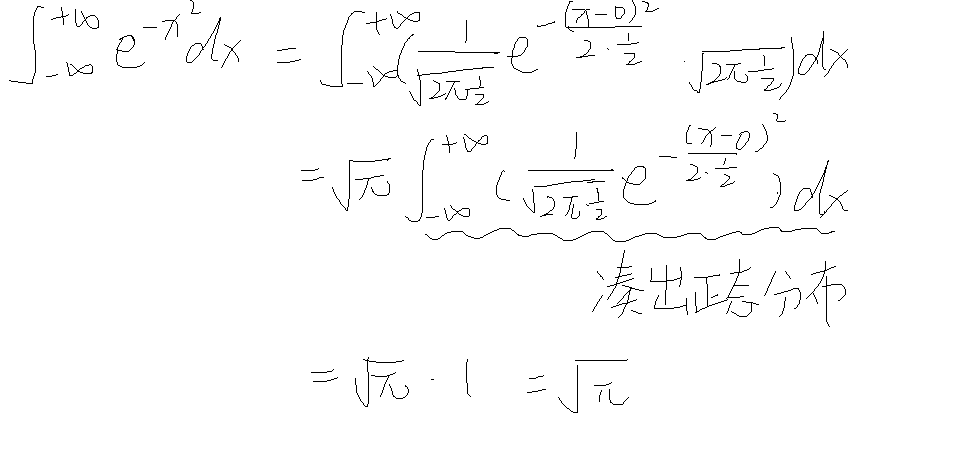 ∫_{-∞}^{+∞} e^{-x^2} dx = ∫_{-∞}^{+∞} ( \frac{1}{\sqrt{2π\frac{1}{2}}} e^{-\frac{(x-0)^2}{2·\frac{1}{2}}} · \sqrt{2π\frac{1}{2}} ) dx
= \sqrt{π} ∫_{-∞}^{+∞} ( \frac{1}{\sqrt{2π·\frac{1}{2}}} e^{-\frac{(x-0)^2}{2·\frac{1}{2}}} ) dx
凑出正态分布
= \sqrt{π} · 1 = \sqrt{π}